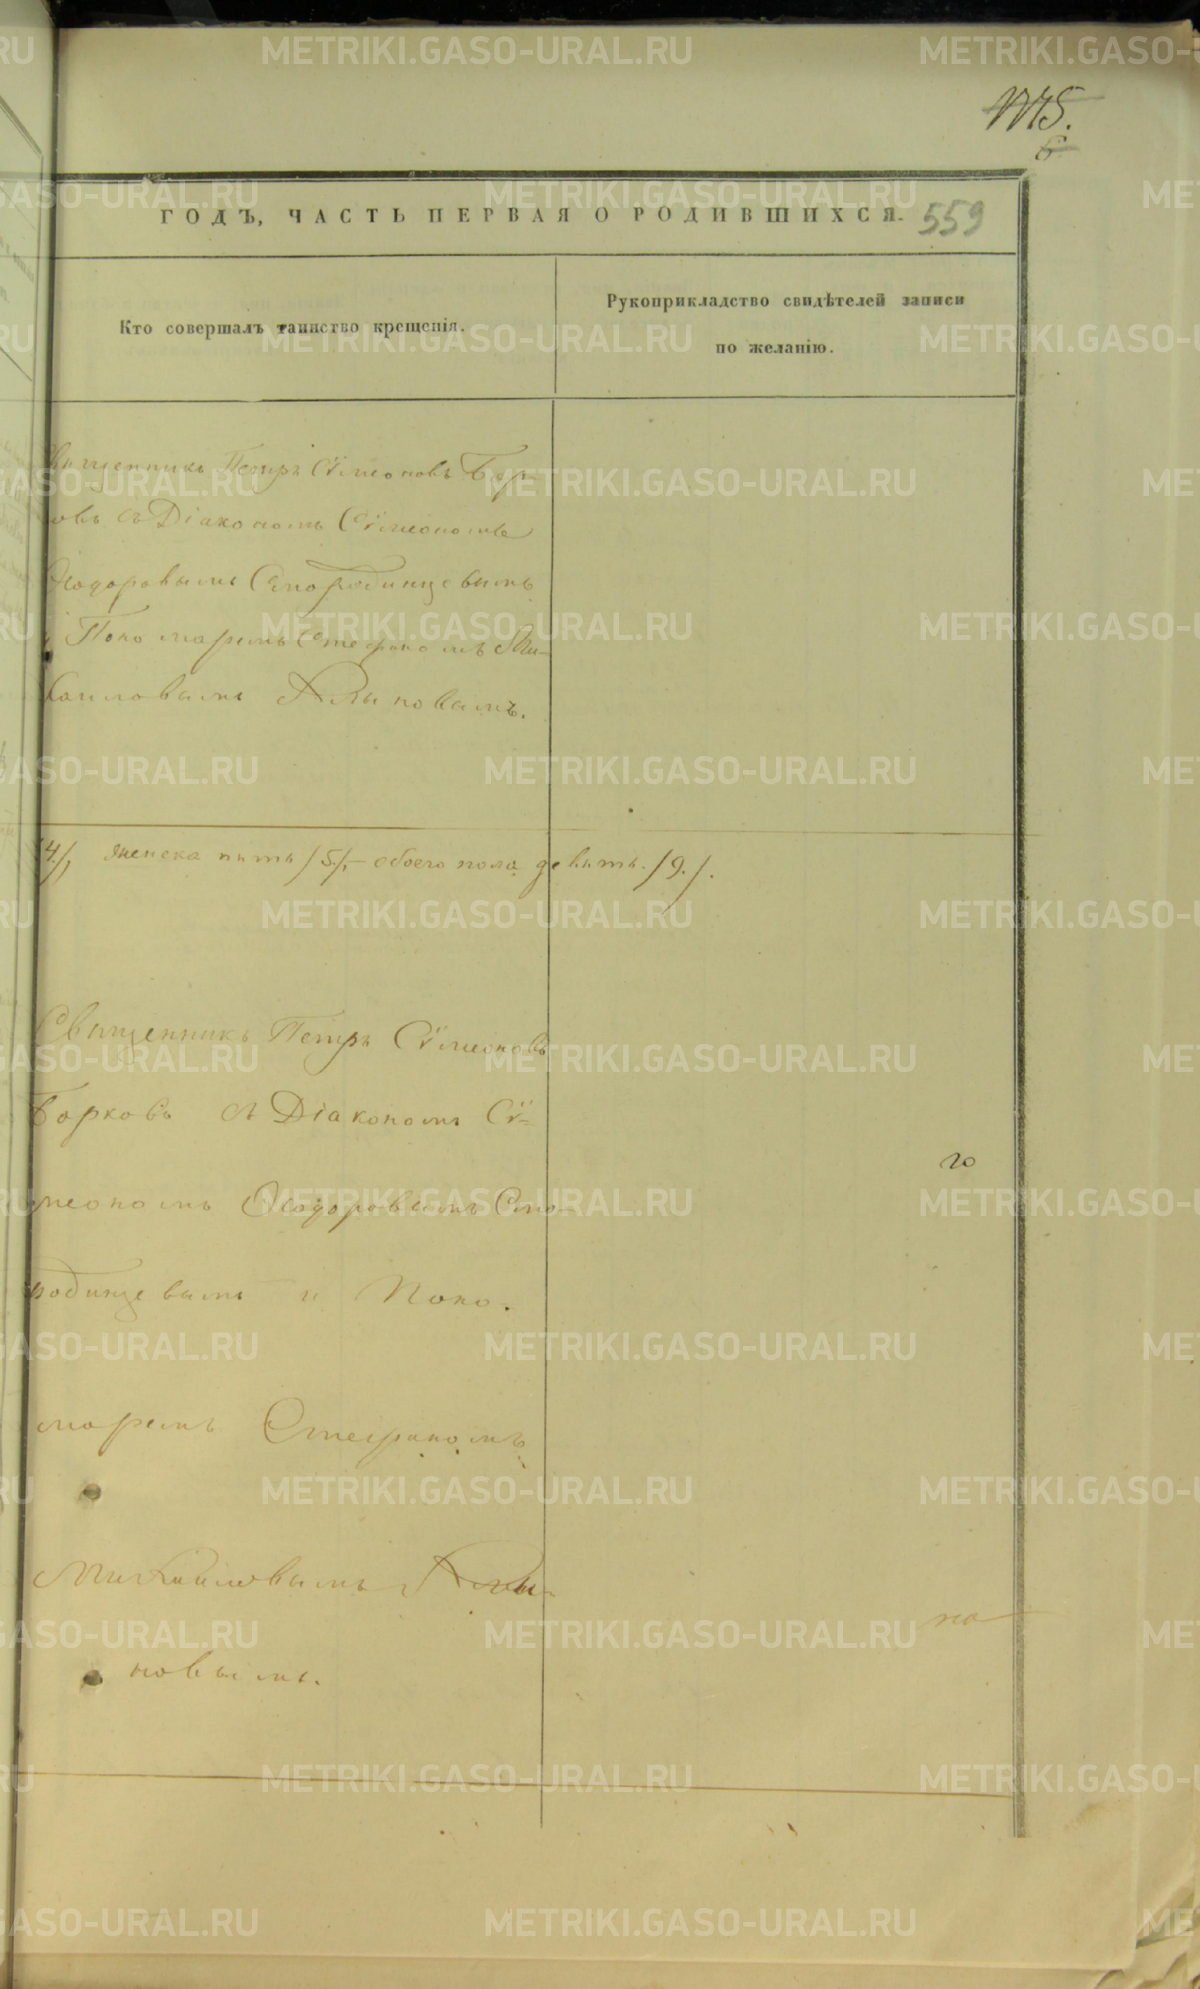 ГОДЪ, ЧАСТЬ ПЕРВАЯ О РОДИВШИХСЯ. 559
Кто совершалъ таинство крещенія.
Рукоприкладство свидѣтелей записи
по желанію.
Священникъ Петръ Сѵмеоновъ Бор-
ковъ съ Діакономъ Сѵмеономъ
Ѳеодоровымъ Смородинцевымъ
и Пономаремъ Стефаномъ Ми-
хаиловымъ
/4/, женска пять /5/, обоего пола девять. /9./.
Священникъ Петръ Сѵмеоновъ
Борковъ съ Діакономъ Сѵ-
меономъ Ѳеодоровымъ Смо-
родинцевымъ и Поно-
го
маремъ Стефаномъ
Михаиловымъ
на
новымъ.
METRIKI.GASO-URAL.RU